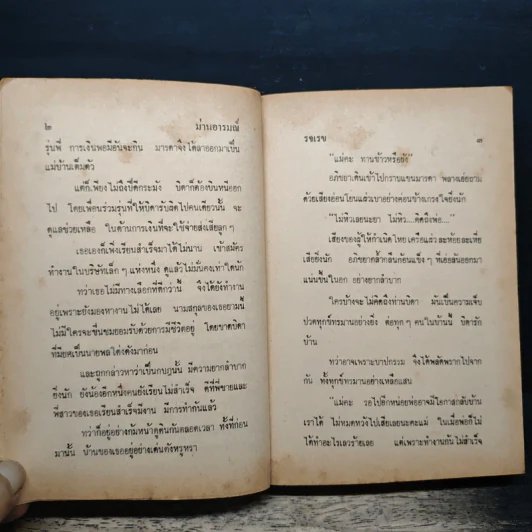 ๒
ม่านอารมณ์
รุ่นพี่ การเงินพอมีอันจะกิน มารดาจึงได้ลาออกมาเป็น
แม่บ้านเต็มตัว
แต่ก็เพียงไม่ถึงปีดีกระมัง บิดาก็ต้องบินหนีออก
ไป โดยเพื่อนร่วมรุ่นพี่ให้บิดารับผิดไปคนเดียวนั้น จะ
ดูแลช่วยเหลือ ในด้านการเงินที่จะใช้จ่ายส่งเสียลูกๆ
เธอเองก็เพิ่งเรียนสำเร็จมาได้ไม่นาน เข้าสมัคร
ทำงานในบริษัทเล็กๆ แห่งหนึ่ง ดูแล้วไม่มั่นคงเท่าใดนัก
ทว่าเธอไม่มีทางเลือกที่ดีกว่านั้น จึงได้ยังทำงาน
อยู่เพราะยังมองหางานไม่ได้เลย นามสกุลของเธอยามนี้
ไม่มีใครจะชื่นชมยอมรับด้วยการมีชีวิตอยู่ โดยขาดบิดา
ที่มียศเป็นนายพลโด่งดังมาก่อน
และถูกกล่าวหาว่าเป็นกบฏนั้น มีความยากลำบาก
ยิ่งนัก ยังน้องอีกหนึ่งคนยังเรียนไม่สำเร็จ ดีที่พี่ชายและ
พี่สาวของเธอเรียนสำเร็จมีงาน มีการทำกันแล้ว
ทว่าก็อยู่อย่างก้มหน้าดูดินกันตลอดเวลา ทั้งที่ก่อน
มานั้น บ้านของเธออยู่อย่างเด่นดังหรูหรา
รจเรข
๓
"แม่คะ ทานข้าวหรือยัง"
อภิชยาเดินเข้าไปกราบแขนมารดา พลางเธอถาม
ด้วยเสียงอ่อนโยนแล้วเบาอย่างค่อนข้างเกรงใจยิ่งนัก
"ไม่หิวเลยนะยา ไม่หิว...คิดถึงพ่อ...."
เสียงของผู้ให้กำเนิดโหยเครือแล้วละห้อยละเหี่ย
เสียยิ่งนัก อภิชยากล้ำกลืนก้อนแข็งๆ ที่เอ่อล้นออกมา
แน่นขึ้นในอก อย่างยากลำบาก
ใครบ้างจะไม่คิดถึงท่านบิดา มันเป็นความเจ็บ
ปวดทุกข์ทรมานอย่างยิ่ง ต่อทุกๆ คนในบ้านนี้ บิดารัก
บ้าน
ทว่าอาจเพราะบาปกรรม จึงได้พลัดพรากไปจาก
กัน ทั้งทุกข์ทรมานอย่างเหลือแสน
"แม่คะ รอไปอีกหน่อยพ่ออาจมีโอกาสกลับบ้าน
เราได้ ไม่หมดหวังไปเสียเลยนะคะแม่ ในเมื่อพ่อก็ไม่
ได้ทำอะไรเลวร้ายเลย แต่เพราะทำงานกันไม่สำเร็จ